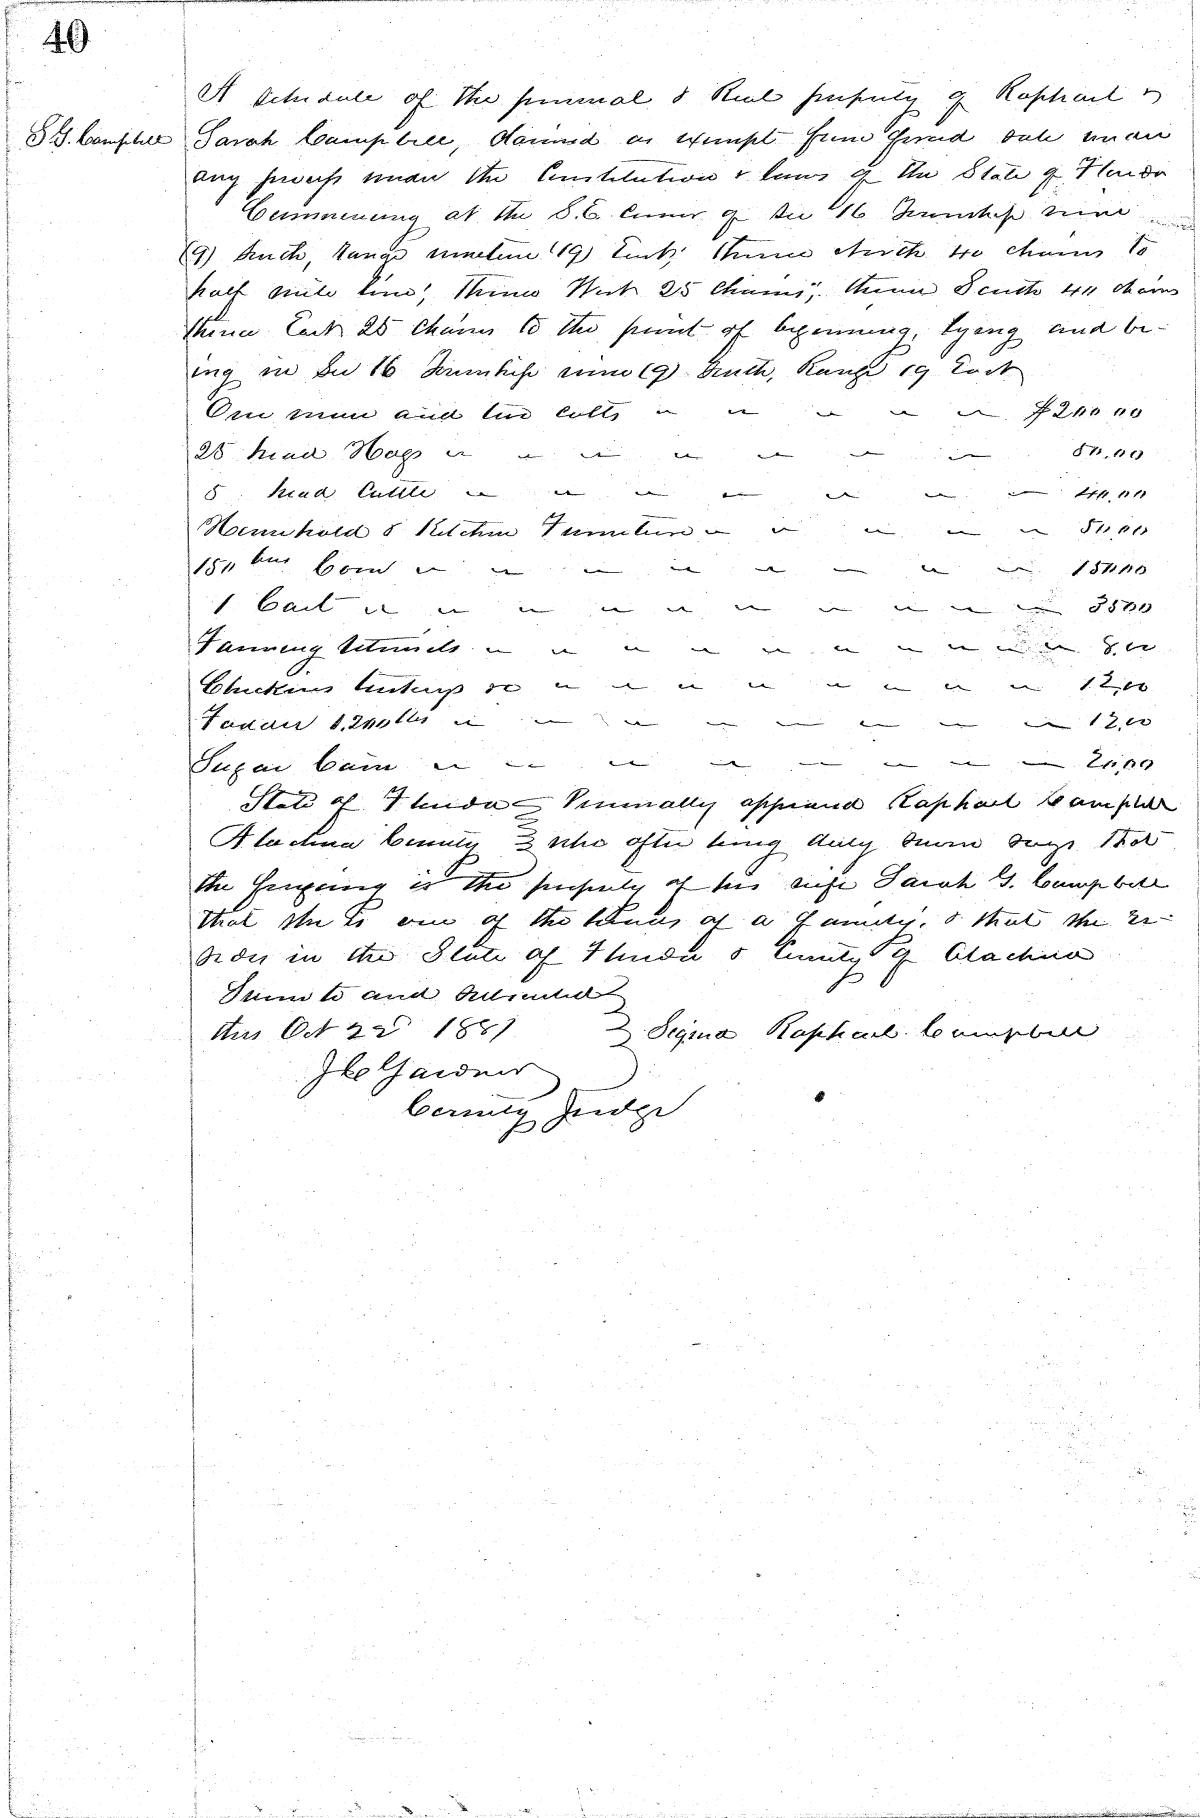 40
A Schedule of the personal & Real property of Raphael &
S. G. Campbell
Sarah Campbell, claimed as exempt from forced sale under
any process under the Constitution & laws of the State of Florida
Commencing at the S.E. Corner of Sec 16 Township nine
(9) South, Range nineteen (19) East; thence North 40 chains to
half mile line; thence West 25 Chains; thence South 40 chains
thence East 25 Chains to the point of beginning, lying and be-
ing in Sec 16 Township nine (9) South, Range 19 East
One mare and two colts " " " " " $200 00
25 head Hogs " " " " " " " 50.00
5 head Cattle " " " " " " " 40.00
Household & Kitchen Furniture " " " " " 50.00
150 bus Corn " " " " " " " " 150.00
1 Cart " " " " " " " " " " 35.00
Farming Utensils " " " " " " " " " " 8.00
Chickens Turkeys &c " " " " " " " " " 12.00
Fodder 1,200 lbs " " " " " " " " 12.00
Sugar Cane " " " " " " " " 20.00
State of Florida } Personally appeared Raphael Campbell
Alachua County } who after being duly sworn says that
the foregoing is the property of his wife Sarah G. Campbell
that she is one of the heads of a family, & that she re-
sides in the State of Florida & County of Alachua
Sworn to and Subscribed }
this Oct 22d 1881 } Signed Raphael Campbell
Gardner }
County Judge